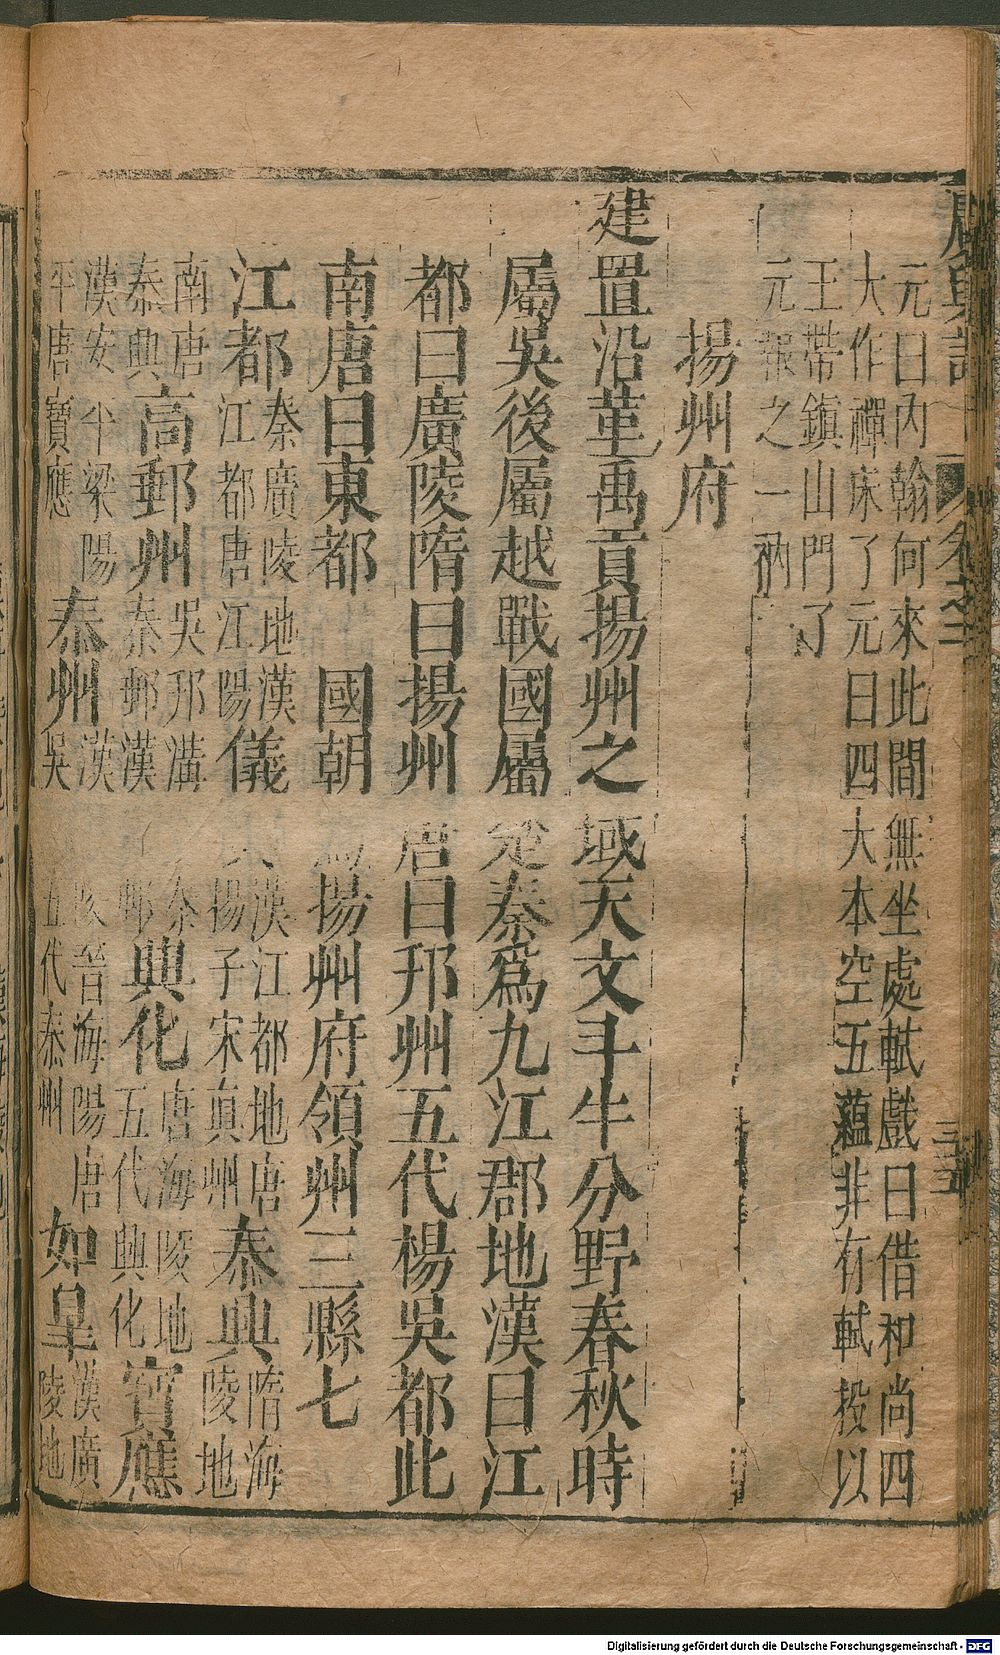 廣輿記 卷之二 三五
元曰內翰何來此間無坐處軾戲曰借和尚四
大作禪床了元曰四大本空五蘊非有軾投以
王帶鎮山門了
元報之一衲
揚州府
建置沿革禹貢揚州之域天文斗牛分野春秋時
屬吳後屬越戰國屬楚秦爲九江郡地漢曰江
都曰廣陵隋曰揚州唐曰邗州五代楊吳都此
南唐曰東都 國朝爲揚州府領州三縣七
江都 秦廣陵地漢江都唐江陽 儀真 漢江都地唐揚子宋真州 泰興 隋海陵地
南唐泰興 高郵州 吳邗溝秦秦郵漢郵 興化 唐海陵地五代興化 寶應
漢安平梁陽平唐寶應 泰州 漢陵晉海陽唐吳五代泰州 如皋 漢廣陵地
Digitalisierung gefördert durch die Deutsche Forschungsgemeinschaft - DFG